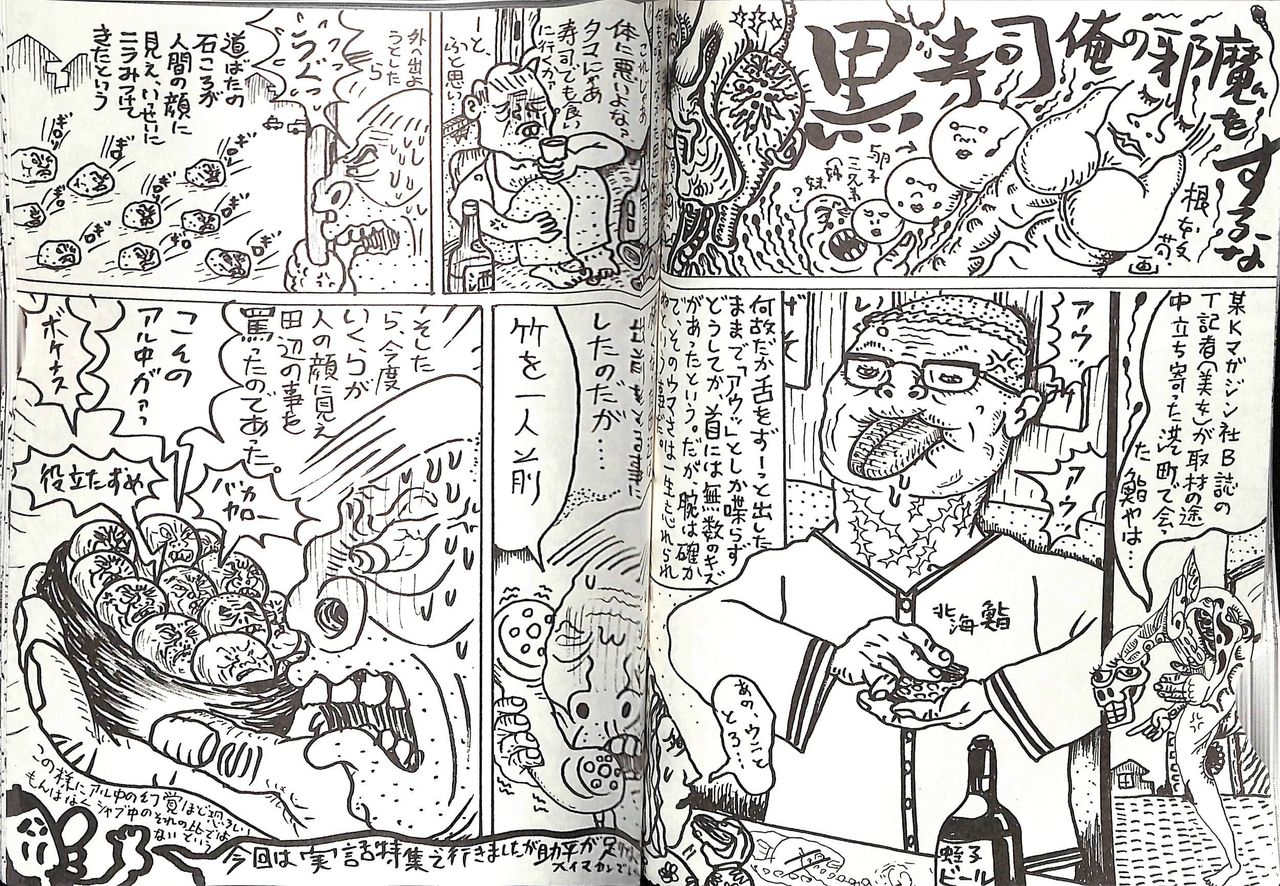 黒寿司俺の邪
魔をするな
根本敬
画
卵子
三兄弟
某Kマガジン社B誌の
T記者(美女)が取材の途
中立ち寄った港町で会っ
た鮨やは…
アウッ
アウッ
何故だか舌をずーっと出した
ままで、「アウッ」としか喋らず
どうしてか、首には無数のキズ
があったという。だが、腕は確か
で、そのウマさは一生忘れられ
北海鮨
あの、ウニと
とろ…
蛭子
ビール
体に悪いよな?
タマにゃあ
寿司でも食い
に行くか?
と、
ふと思い…
外の出よ
うとした
ら
うぐっ
道ばたの
石ころが
人間の顔に
見え、いっせいに
ニラみつけて
きたという
ぽろ
ぽろ
ぽろ
ぽろ
ぽろ
ぽろ
ぽろ
したのだが…
竹を一人前
そした
ら、今度
いくらが
人の顔に見え
田辺の事を
罵ったのであった。
こその
アル中がァっ
ボケナス
役立たずめ
バカ
ヤロー
この様にアル中の幻覚はじつに恐ろしい
もんはなくシャブ中のそれの比では
ないという
今回は「実」話特集で行きましたが助平が足りなく
スイマセンでし